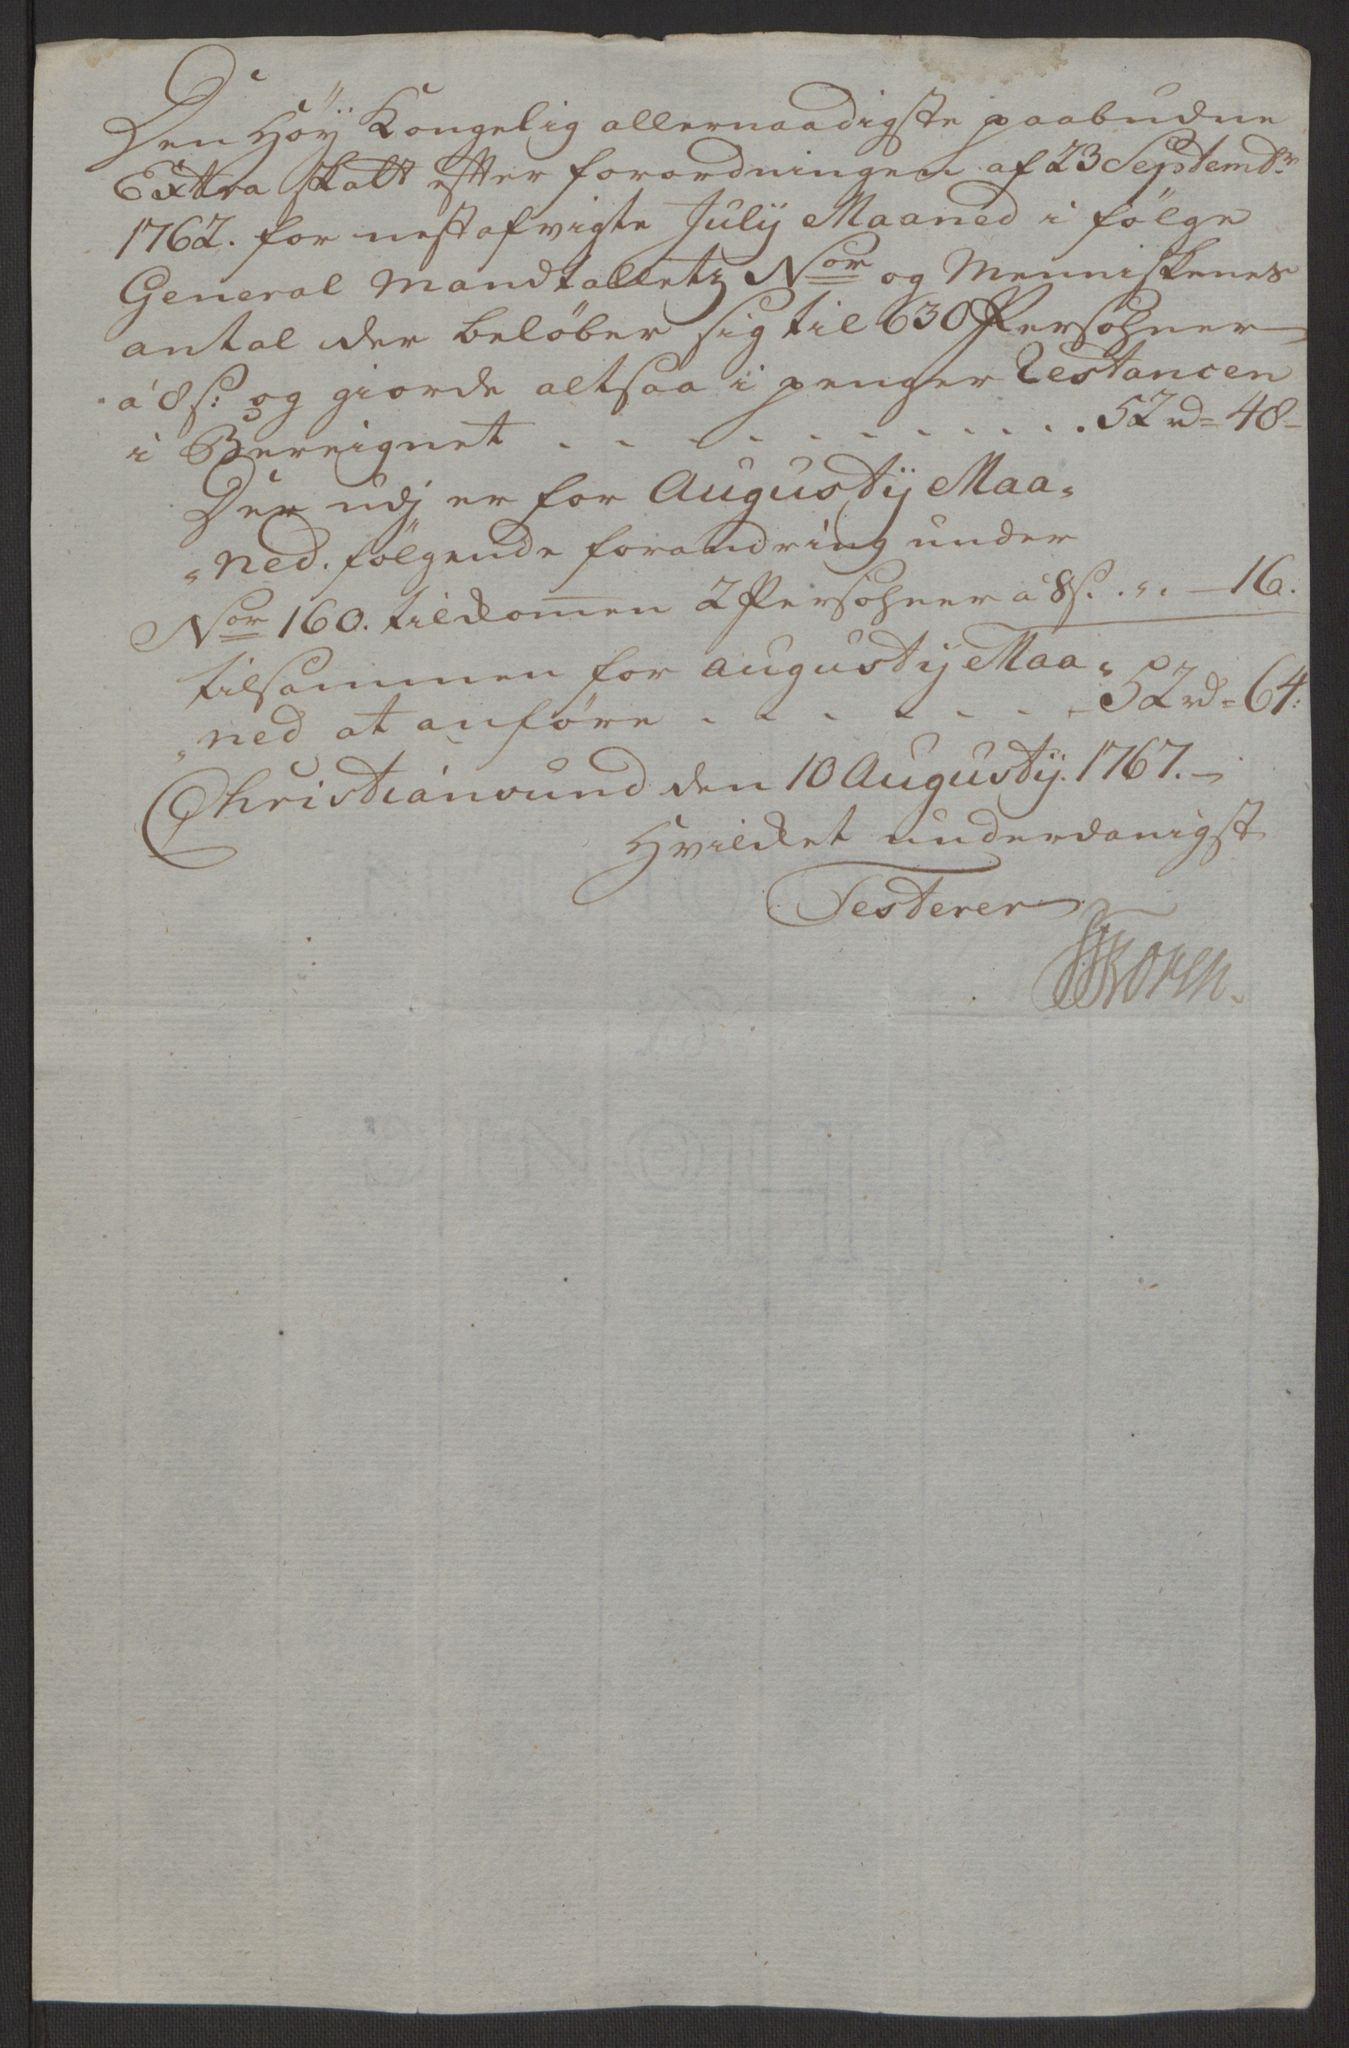 Den Höÿ Kongelig allernaadigste paabudne
Extra skatt efter forordningen af 23 Septembr
1762. for nestafvigte Julÿ Maaned i følge
General Mandtalletz Nor og Menniskenes
antal der beløber sig til 630 Persohner
â 8 s: og giorde altsaa i penger Restancen
i Bereignet . . . . . . . . . . . . 52 rd = 48 -
Der udj er for Augustÿ Maa=
=ned. følgende forandring under
Nor 160. tilkomen 2 Persohner â 8 s. . " . — 16.
tilsammen for Augustÿ Maa=
=ned at anføre . . . . . . . 52 rd = 64:
Christiansund den 10 Augustÿ. 1767. –
Hvilket underdanigst
Testerer
JKoren.